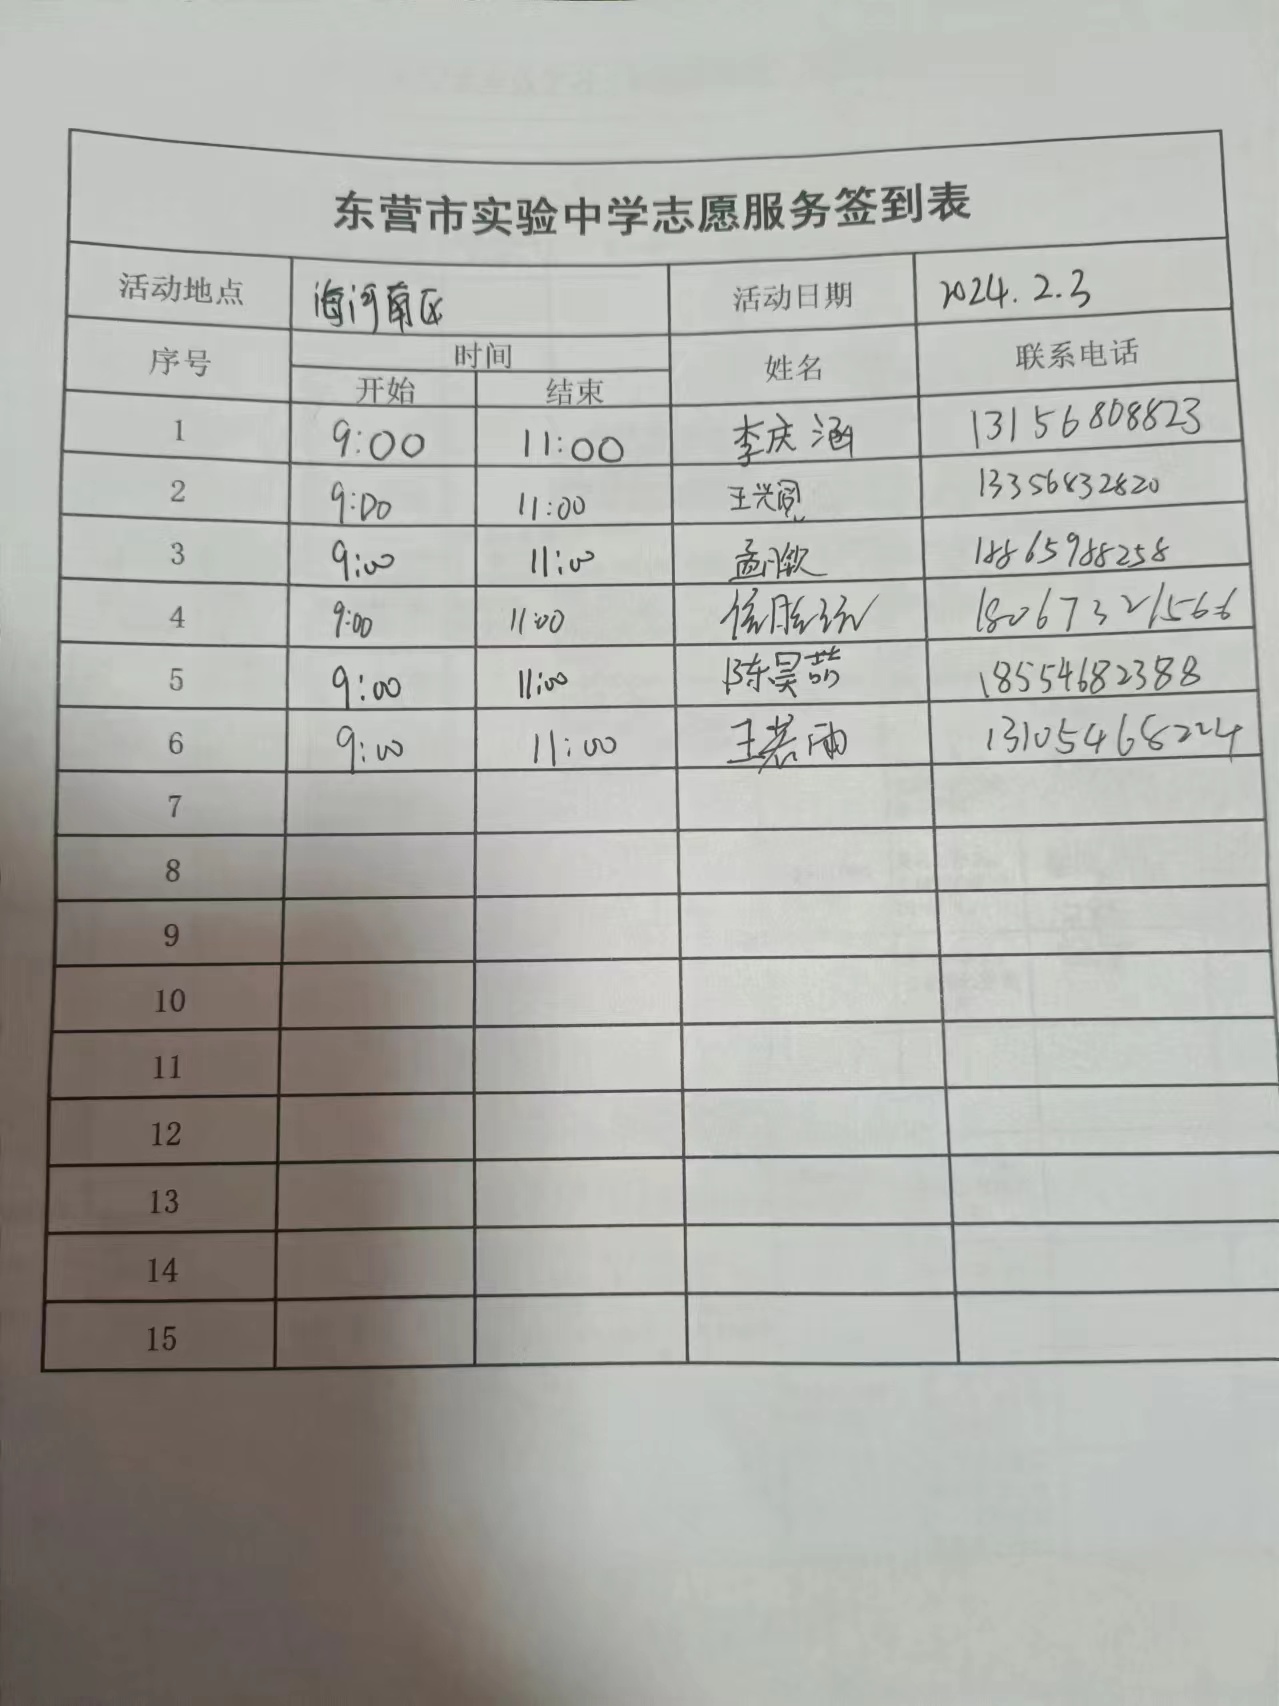 东营市实验中学志愿服务签到表
活动地点 海河南区 活动日期 2024.2.3
序号 时间 姓名 联系电话
开始 结束
1 9:00 11:00 李庆涵 13156808823
2 9:00 11:00 王兴 13356832820
3 9:00 11:00 孟 18865988258
4 9:00 11:00 18067321566
5 9:00 11:00 陈昊喆 18554682388
6 9:00 11:00 王若雨 13105468224
7
8
9
10
11
12
13
14
15